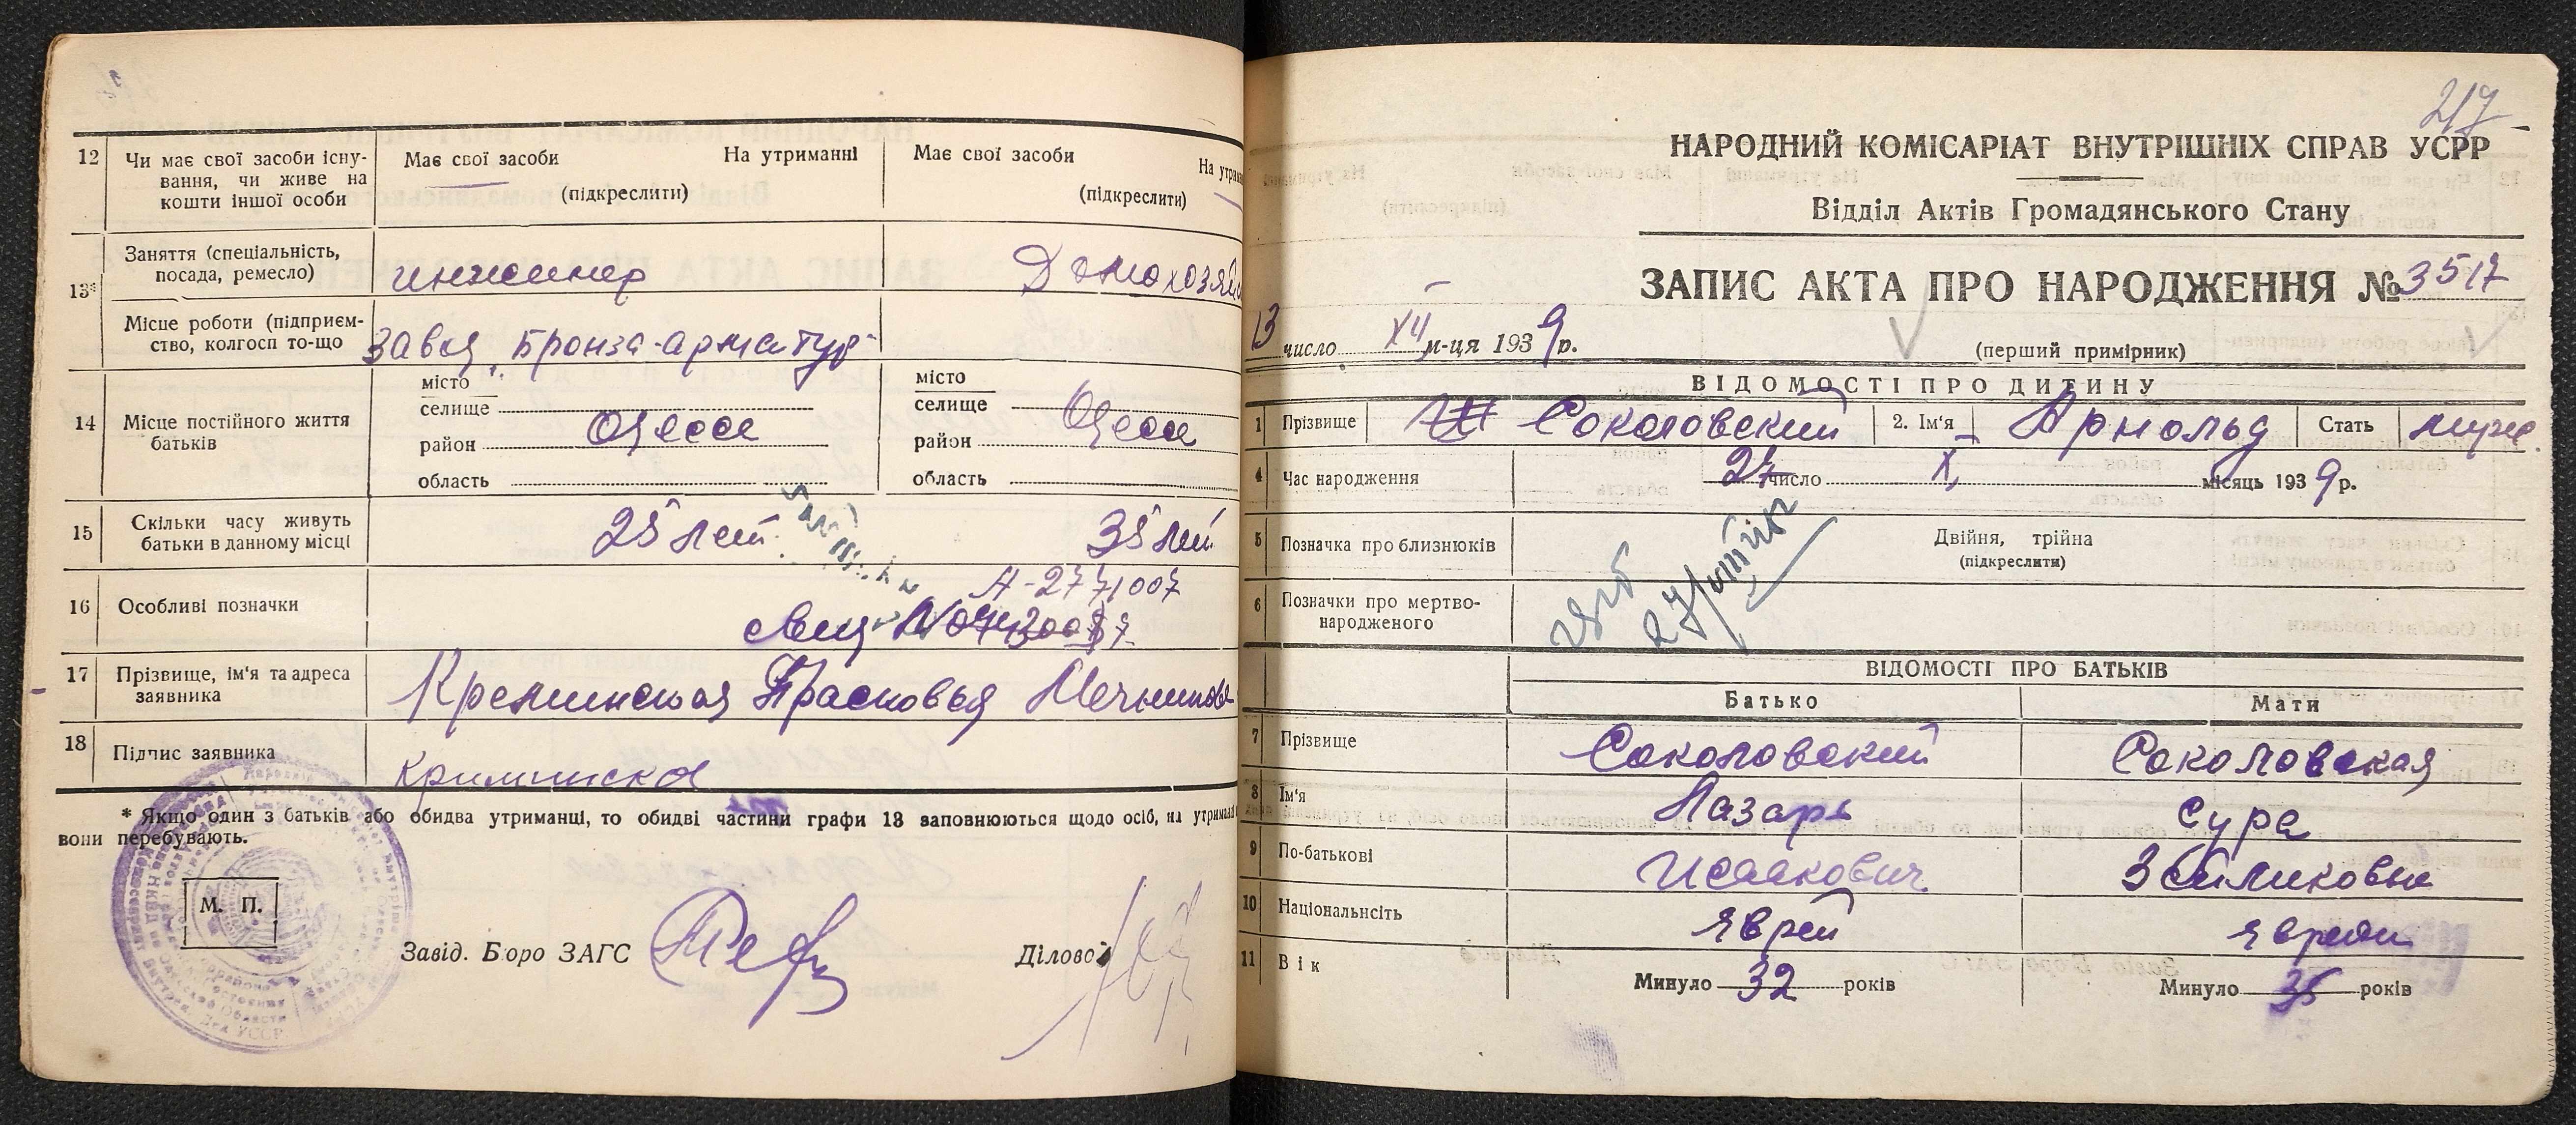 12 Чи має свої засоби існу-
вання, чи живе на
кошти іншої особи
Має свої засоби На утриманні
(підкреслити)
Має свої засоби На утрим
(підкреслити)
13* Заняття (спеціальність,
посада, ремесло)
инженер Домохозяй
Місце роботи (підприєм-
ство, колгосп то-що
Завод Бронза-арматур-
14 Місце постійного життя
батьків
місто
селище
район Одесса
область
місто
селище
район Одесса
область
15 Скільки часу живуть
батьки в данному місці
25 лет 35 лет
16 Особливі позначки
17 Прізвище, ім'я та адреса
заявника
Прасковья
18 Підпис заявника
* Якщо один з батьків або обидва утриманці, то обидві частини графи 13 заповнюються щодо осіб, на утриман
вони перебувають.
М. П.
Завід. Бюро ЗАГС Діловод
217
НАРОДНИЙ КОМІСАРІАТ ВНУТРІШНІХ СПРАВ УСРР
Відділ Актів Громадянського Стану
ЗАПИС АКТА ПРО НАРОДЖЕННЯ № 3517
13 число XII м-ця 1939 р.
(перший примірник)
ВІДОМОСТІ ПРО ДИТИНУ
1 Прізвище Соколовский 2. Ім'я Арнольд Стать муж.
4 Час народження 27 число X місяць 1939 р.
5 Позначка про близнюків
Двійня, трійна
(підкреслити)
6 Позначки про мертво-
народженого
ВІДОМОСТІ ПРО БАТЬКІВ
Батько Мати
7 Прізвище Соколовский Соколовская
8 Ім'я Лазарь Сура
9 По-батькові Исаакович
10 Національність еврей еврейк
11 Вік Минуло 32 років Минуло 35 років